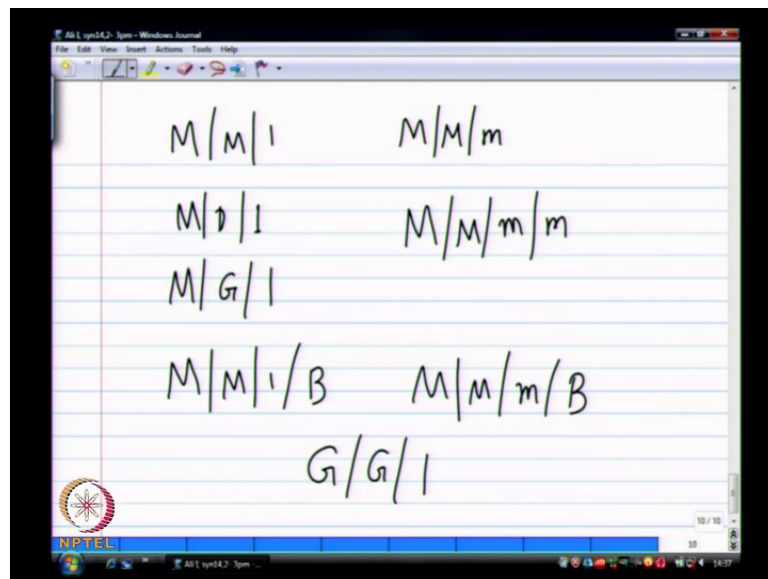 Ali 1, syn14,2- 3pm - Windows Journal
File Edit View Insert Actions Tools Help
M/M/1 M/M/m
M/D/1 M/M/m/m
M/G/1
M/M/1/B M/M/m/B
G/G/1
10 / 10
10
NPTEL
Ali 1, syn14,2- 3pm -...
14:37